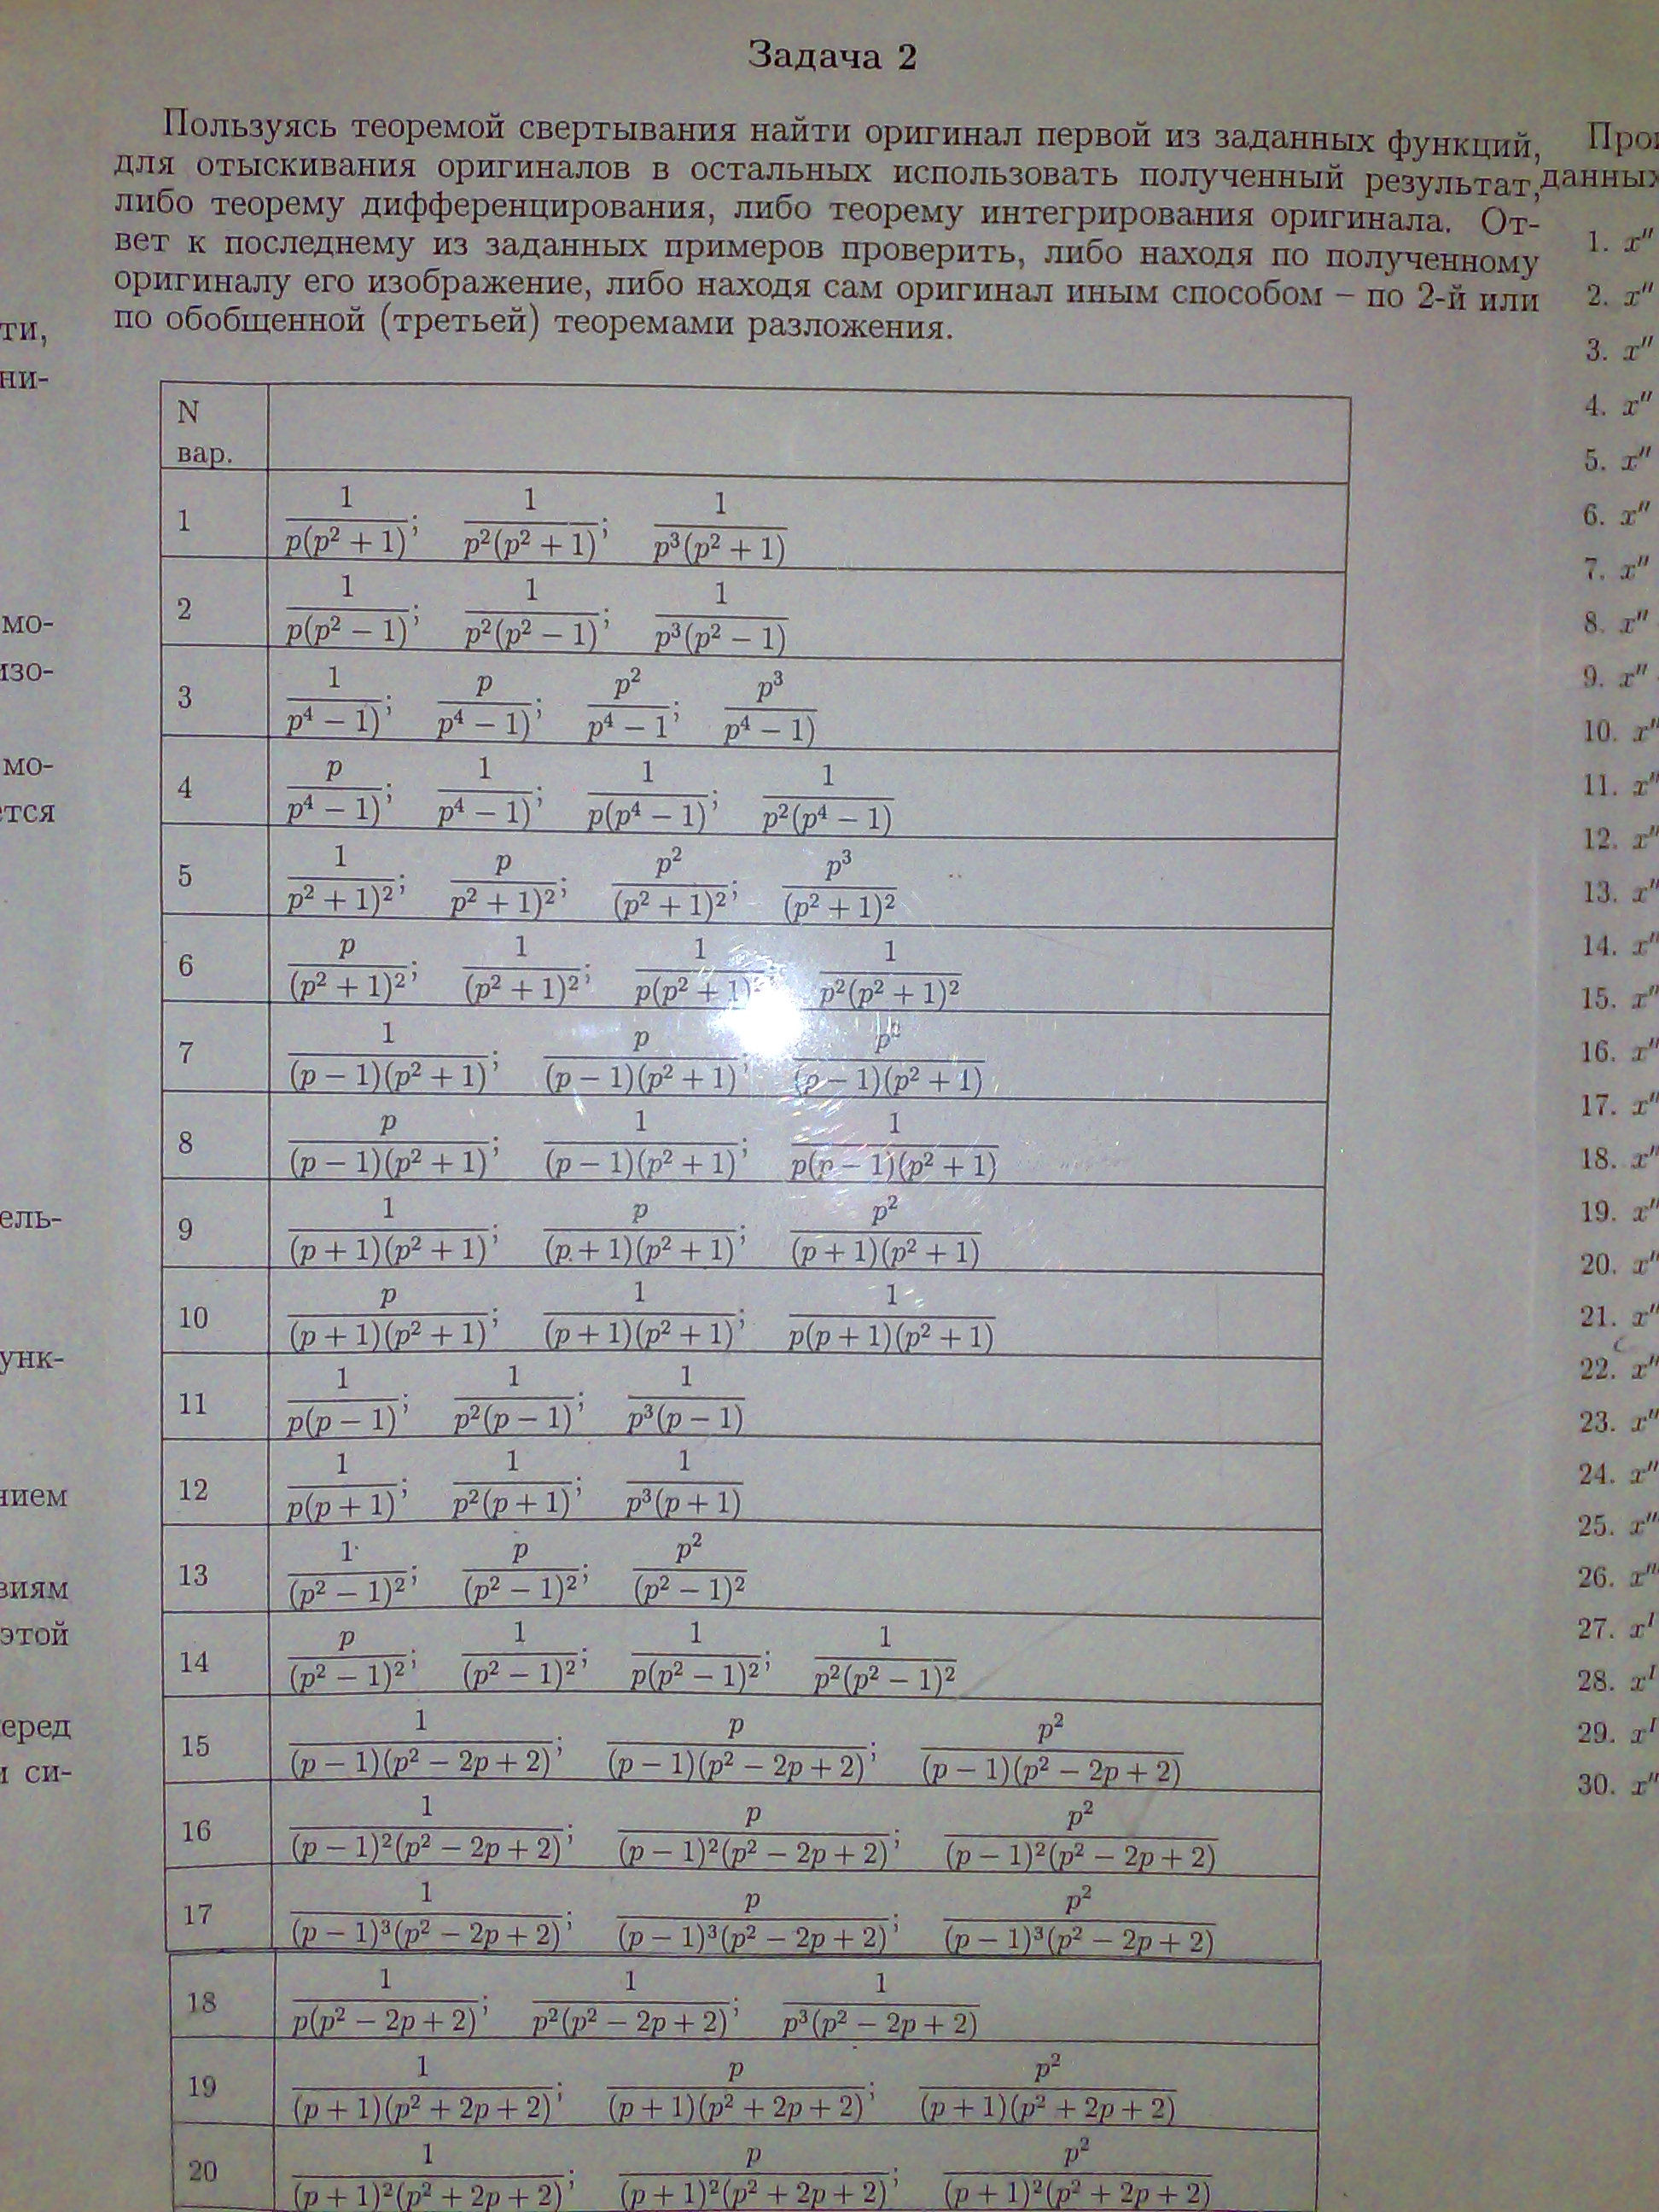 Задача 2
Пользуясь теоремой свертывания найти оригинал первой из заданных функций,
для отыскивания оригиналов в остальных использовать полученный результат,
либо теорему дифференцирования, либо теорему интегрирования оригинала. От-
вет к последнему из заданных примеров проверить, либо находя по полученному
оригиналу его изображение, либо находя сам оригинал иным способом – по 2-й или
по обобщенной (третьей) теоремами разложения.
N
вар.
1 1/p(p² + 1); 1/p²(p² + 1); 1/p³(p² + 1)
2 1/p(p² − 1); 1/p²(p² − 1); 1/p³(p² − 1)
3 1/p⁴ − 1); p/p⁴ − 1); p²/p⁴ − 1; p³/p⁴ − 1)
4 p/p⁴ − 1); 1/p⁴ − 1); 1/p(p⁴ − 1); 1/p²(p⁴ − 1)
5 1/p² + 1)²; p/p² + 1)²; p²/(p² + 1)²; p³/(p² + 1)²
6 p/(p² + 1)²; 1/(p² + 1)²; 1/p(p² + 1)²; 1/p²(p² + 1)²
7 1/(p − 1)(p² + 1); p/(p − 1)(p² + 1); p²/(p − 1)(p² + 1)
8 p/(p − 1)(p² + 1); 1/(p − 1)(p² + 1); 1/p(p − 1)(p² + 1)
9 1/(p + 1)(p² + 1); p/(p + 1)(p² + 1); p²/(p + 1)(p² + 1)
10 p/(p + 1)(p² + 1); 1/(p + 1)(p² + 1); 1/p(p + 1)(p² + 1)
11 1/p(p − 1); 1/p²(p − 1); 1/p³(p − 1)
12 1/p(p + 1); 1/p²(p + 1); 1/p³(p + 1)
13 1/(p² − 1)²; p/(p² − 1)²; p²/(p² − 1)²
14 p/(p² − 1)²; 1/(p² − 1)²; 1/p(p² − 1)²; 1/p²(p² − 1)²
15 1/(p − 1)(p² − 2p + 2); p/(p − 1)(p² − 2p + 2); p²/(p − 1)(p² − 2p + 2)
16 1/(p − 1)²(p² − 2p + 2); p/(p − 1)²(p² − 2p + 2); p²/(p − 1)²(p² − 2p + 2)
17 1/(p − 1)³(p² − 2p + 2); p/(p − 1)³(p² − 2p + 2); p²/(p − 1)³(p² − 2p + 2)
18 1/p(p² − 2p + 2); 1/p²(p² − 2p + 2); 1/p³(p² − 2p + 2)
19 1/(p + 1)(p² + 2p + 2); p/(p + 1)(p² + 2p + 2); p²/(p + 1)(p² + 2p + 2)
20 1/(p + 1)²(p² + 2p + 2); p/(p + 1)²(p² + 2p + 2); p²/(p + 1)²(p² + 2p + 2)
ти,
ни-
мо-
изо-
мо-
ется
ель-
унк-
нием
виям
этой
еред
и си-
Про
данных
1. x″
2. x″
3. x″
4. x″
5. x″
6. x″
7. x″
8. x″
9. x″
10. x″
11. x″
12. x″
13. x″
14. x″
15. x″
16. x″
17. x″
18. x″
19. x″
20. x″
21. x″
22. x″
23. x″
24. x″
25. x″
26. x″
27. x
28. x
29. x
30. x″